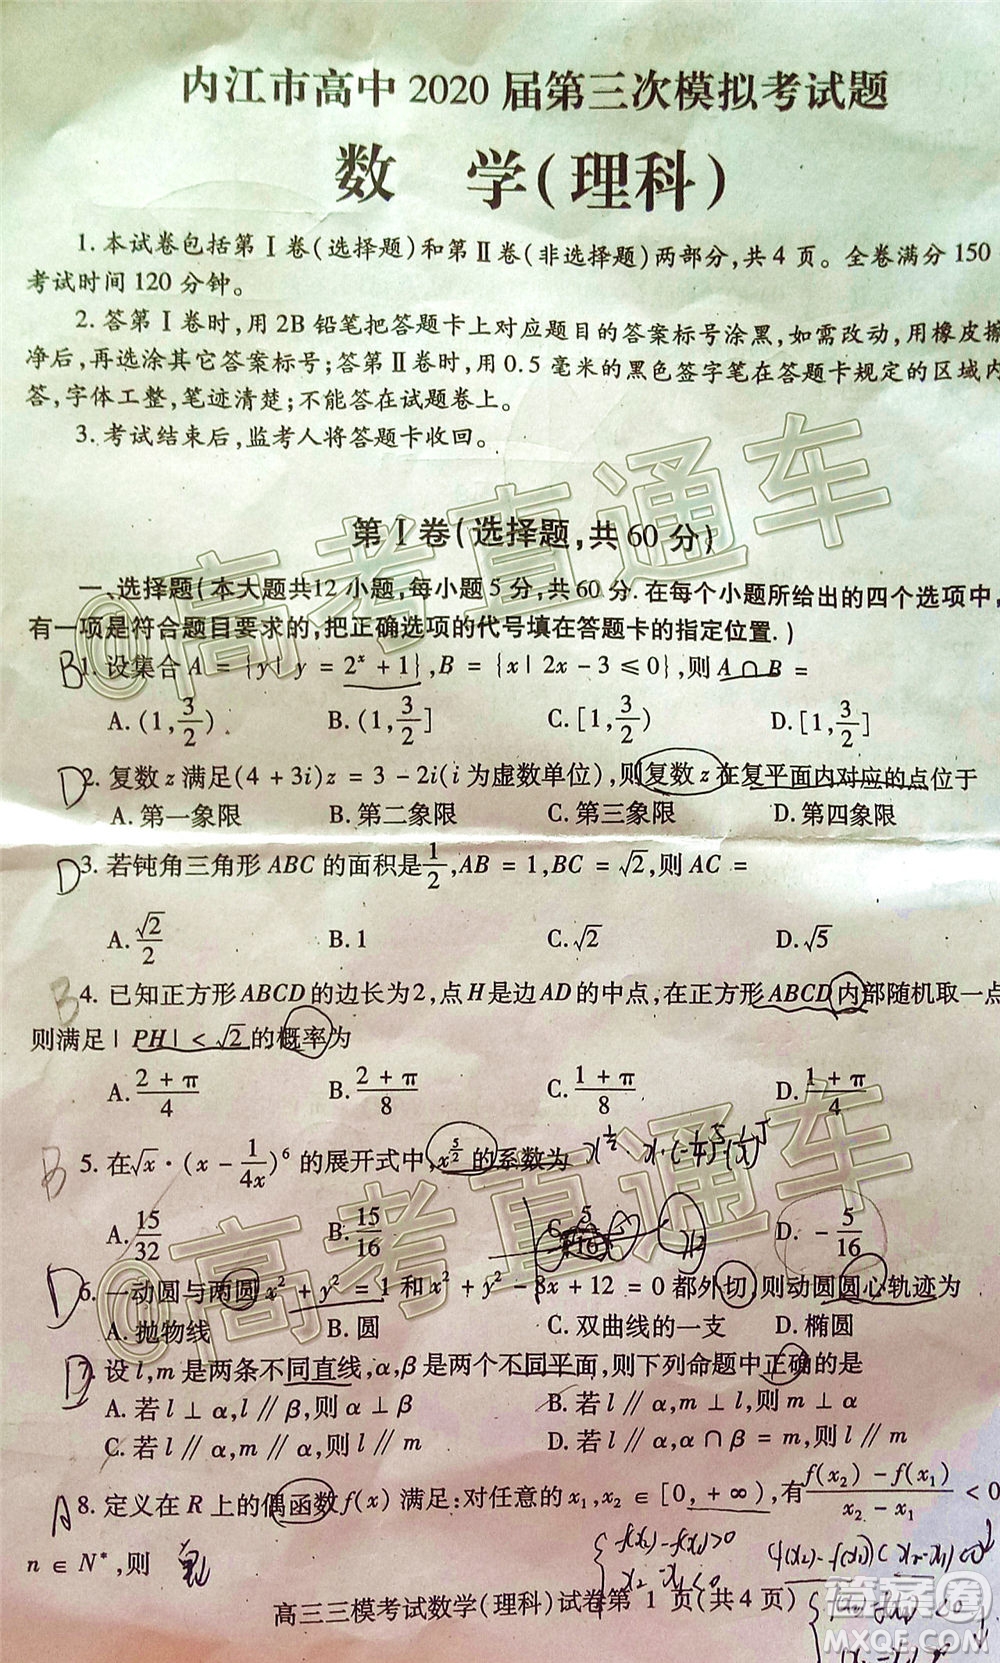 内江市高中2020届第三次模拟考试题
数 学(理科)
1.本试卷包括第Ⅰ卷(选择题)和第Ⅱ卷(非选择题)两部分,共4页。全卷满分150
考试时间120分钟。
2.答第Ⅰ卷时,用2B铅笔把答题卡上对应题目的答案标号涂黑,如需改动,用橡皮擦
净后,再选涂其它答案标号;答第Ⅱ卷时,用0.5毫米的黑色签字笔在答题卡规定的区域内
答,字体工整,笔迹清楚;不能答在试题卷上。
3.考试结束后,监考人将答题卡收回。
第Ⅰ卷(选择题,共60分)
一、选择题(本大题共12小题,每小题5分,共60分.在每个小题所给出的四个选项中,
有一项是符合题目要求的,把正确选项的代号填在答题卡的指定位置.)
B 1.设集合A={y|y=2^x+1},B={x|2x-3≤0},则A∩B=
A.(1,3/2) B.(1,3/2] C.[1,3/2) D.[1,3/2]
D 2.复数z满足(4+3i)z=3-2i(i为虚数单位),则复数z在复平面内对应的点位于
A.第一象限 B.第二象限 C.第三象限 D.第四象限
D 3.若钝角三角形ABC的面积是1/2,AB=1,BC=√2,则AC=
A.√2/2 B.1 C.√2 D.√5
B 4.已知正方形ABCD的边长为2,点H是边AD的中点,在正方形ABCD内部随机取一点
则满足|PH|<√2的概率为
A.(2+π)/4 B.(2+π)/8 C.(1+π)/8 D.(1+π)/4
B 5.在√x·(x-1/(4x))^6的展开式中,x^(5/2)的系数为
A.15/32 B.15/16 C.-5/16 D.-5/16
D 6.一动圆与两圆x²+y²=1和x²+y²-8x+12=0都外切,则动圆圆心轨迹为
A.抛物线 B.圆 C.双曲线的一支 D.椭圆
D 7.设l,m是两条不同直线,α,β是两个不同平面,则下列命题中正确的是
A.若l⊥α,l∥β,则α⊥β B.若l∥α,l⊥m,则m⊥α
C.若l∥α,m∥α,则l∥m D.若l∥α,α∩β=m,则l∥m
A 8.定义在R上的偶函数f(x)满足:对任意的x₁,x₂∈[0,+∞),有(f(x₂)-f(x₁))/(x₂-x₁)<0
n∈N*,则
高三三模考试数学(理科)试卷第 1 页(共4页)
@高考直通车
@高考直通车
答案圈
MXQE.COM